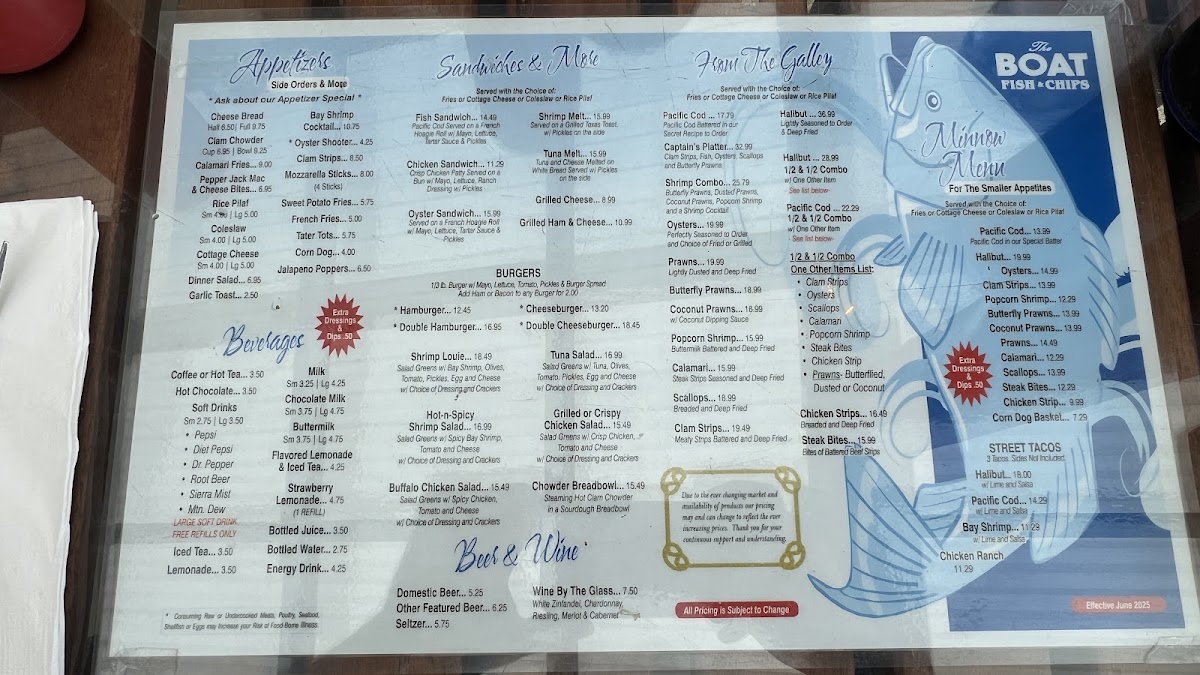 Appetizers
Side Orders & More
* Ask about our Appetizer Special *
Cheese Bread
Half 6.50| Full 9.75
Clam Chowder
Cup 6.95 | Bowl 9.25
Calamari Fries... 9.00
Pepper Jack Mac
& Cheese Bites... 6.95
Rice Pilaf
Sm 4.00 | Lg 5.00
Coleslaw
Sm 4.00 | Lg 5.00
Cottage Cheese
Sm 4.00 | Lg 5.00
Dinner Salad... 6.95
Garlic Toast... 2.50
Bay Shrimp
Cocktail... 10.75
* Oyster Shooter... 4.25
Clam Strips... 8.50
Mozzarella Sticks... 8.00
(4 Sticks)
Sweet Potato Fries... 5.75
French Fries... 5.00
Tater Tots... 5.75
Corn Dog... 4.00
Jalapeno Poppers... 6.50
Extra
Dressings
&
Dips .50
Beverages
Coffee or Hot Tea... 3.50
Hot Chocolate... 3.50
Soft Drinks
Sm 2.75 | Lg 3.50
• Pepsi
• Diet Pepsi
• Dr. Pepper
• Root Beer
• Sierra Mist
• Mtn. Dew
LARGE SOFT DRINK
FREE REFILLS ONLY
Iced Tea... 3.50
Lemonade... 3.50
Milk
Sm 3.25 | Lg 4.25
Chocolate Milk
Sm 3.75 | Lg 4.75
Buttermilk
Sm 3.75 | Lg 4.75
Flavored Lemonade
& Iced Tea... 4.25
Strawberry
Lemonade... 4.75
(1 REFILL)
Bottled Juice... 3.50
Bottled Water... 2.75
Energy Drink... 4.25
* Consuming Raw or Undercooked Meats, Poultry, Seafood,
Shellfish or Eggs may Increase your Risk of Food-Borne Illness.
Sandwiches & More
Served with the Choice of:
Fries or Cottage Cheese or Coleslaw or Rice Pilaf
Fish Sandwich... 14.49
Pacific Cod Served on a French
Hoagie Roll w/ Mayo, Lettuce,
Tartar Sauce & Pickles
Chicken Sandwich... 11.29
Crisp Chicken Patty Served on a
Bun w/ Mayo, Lettuce, Ranch
Dressing w/ Pickles
Oyster Sandwich... 15.99
Served on a French Hoagie Roll
w/ Mayo, Lettuce, Tartar Sauce &
Pickles
Shrimp Melt... 15.99
Served on a Grilled Texas Toast,
w/ Pickles on the side
Tuna Melt... 15.99
Tuna and Cheese Melted on
White Bread Served w/ Pickles
on the side
Grilled Cheese... 8.99
Grilled Ham & Cheese... 10.99
BURGERS
1/3 lb. Burger w/ Mayo, Lettuce, Tomato, Pickles & Burger Spread
Add Ham or Bacon to any Burger for 2.00
* Hamburger... 12.45
* Cheeseburger... 13.20
* Double Hamburger... 16.95
* Double Cheeseburger... 18.45
Shrimp Louie... 18.49
Salad Greens w/ Bay Shrimp, Olives,
Tomato, Pickles, Egg and Cheese
w/ Choice of Dressing and Crackers
Tuna Salad... 16.99
Salad Greens w/ Tuna, Olives,
Tomato, Pickles, Egg and Cheese
w/ Choice of Dressing and Crackers
Hot-n-Spicy
Shrimp Salad... 16.99
Salad Greens w/ Spicy Bay Shrimp,
Tomato and Cheese
w/ Choice of Dressing and Crackers
Grilled or Crispy
Chicken Salad... 15.49
Salad Greens w/ Crisp Chicken,
Tomato and Cheese
w/ Choice of Dressing and Crackers
Buffalo Chicken Salad... 15.49
Salad Greens w/ Spicy Chicken,
Tomato and Cheese
w/ Choice of Dressing and Crackers
Chowder Breadbowl... 15.49
Steaming Hot Clam Chowder
in a Sourdough Breadbowl
Beer & Wine
Domestic Beer... 5.25
Other Featured Beer... 6.25
Seltzer... 5.75
Wine By The Glass... 7.50
White Zinfandel, Chardonnay,
Riesling, Merlot & Cabernet
From The Galley
Served with the Choice of:
Fries or Cottage Cheese or Coleslaw or Rice Pilaf
Pacific Cod ... 17.79
Pacific Cod Battered in our
Secret Recipe to Order
Captain's Platter... 32.99
Clam Strips, Fish, Oysters, Scallops
and Butterfly Prawns
Shrimp Combo... 25.79
Butterfly Prawns, Dusted Prawns,
Coconut Prawns, Popcorn Shrimp
and a Shrimp Cocktail
Oysters... 19.99
Perfectly Seasoned to Order
and Choice of Fried or Grilled
Prawns... 19.99
Lightly Dusted and Deep Fried
Butterfly Prawns... 18.99
Coconut Prawns... 18.99
w/ Coconut Dipping Sauce
Popcorn Shrimp... 15.99
Buttermilk Battered and Deep Fried
Calamari... 15.99
Steak Strips Seasoned and Deep Fried
Scallops... 18.99
Breaded and Deep Fried
Clam Strips... 19.49
Meaty Strips Battered and Deep Fried
Halibut ... 36.99
Lightly Seasoned to Order
& Deep Fried
Halibut ... 28.99
1/2 & 1/2 Combo
w/ One Other Item
See list below-
Pacific Cod ... 22.29
1/2 & 1/2 Combo
w/ One Other Item
See list below-
1/2 & 1/2 Combo
One Other Items List:
• Clam Strips
• Oysters
• Scallops
• Calamari
• Popcorn Shrimp
• Steak Bites
• Chicken Strip
• Prawns- Butterflied,
Dusted or Coconut
Chicken Strips... 16.49
Breaded and Deep Fried
Steak Bites... 15.99
Bites of Battered Beef Strips
Due to the ever changing market and
availability of products our pricing
may and can change to reflect the ever
increasing prices. Thank you for your
continuous support and understanding.
All Pricing is Subject to Change
The
BOAT
FISH & CHIPS
Minnow
Menu
For The Smaller Appetites
Served with the Choice of:
Fries or Cottage Cheese or Coleslaw or Rice Pilaf
Pacific Cod... 13.99
Pacific Cod in our Special Batter
Halibut... 19.99
Oysters... 14.99
Clam Strips... 13.99
Popcorn Shrimp... 12.29
Butterfly Prawns... 13.99
Coconut Prawns... 13.99
Prawns... 14.49
Calamari... 12.29
Scallops... 13.99
Steak Bites... 12.29
Chicken Strip... 9.99
Corn Dog Basket... 7.29
Extra
Dressings
&
Dips .50
STREET TACOS
3 Tacos. Sides Not Included
Halibut... 18.00
w/ Lime and Salsa
Pacific Cod... 14.29
w/ Lime and Salsa
Bay Shrimp... 11.29
w/ Lime and Salsa
Chicken Ranch
11.29
Effective June 2025